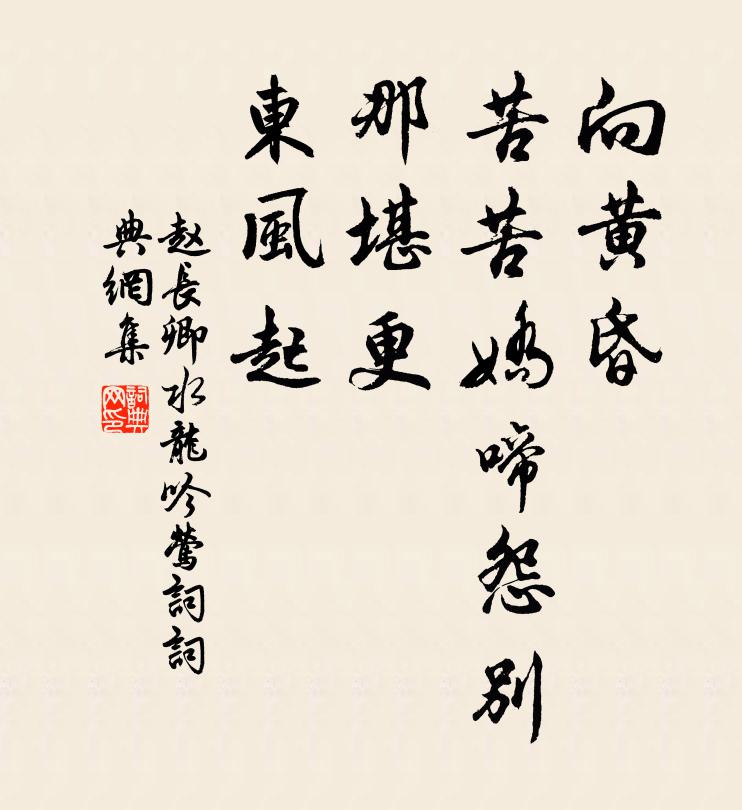 向黄昏
苦苦嬌啼怨別
那堪更
東風起
赵長卿水龍吟鶯詞詞
典網集
詞典
网印